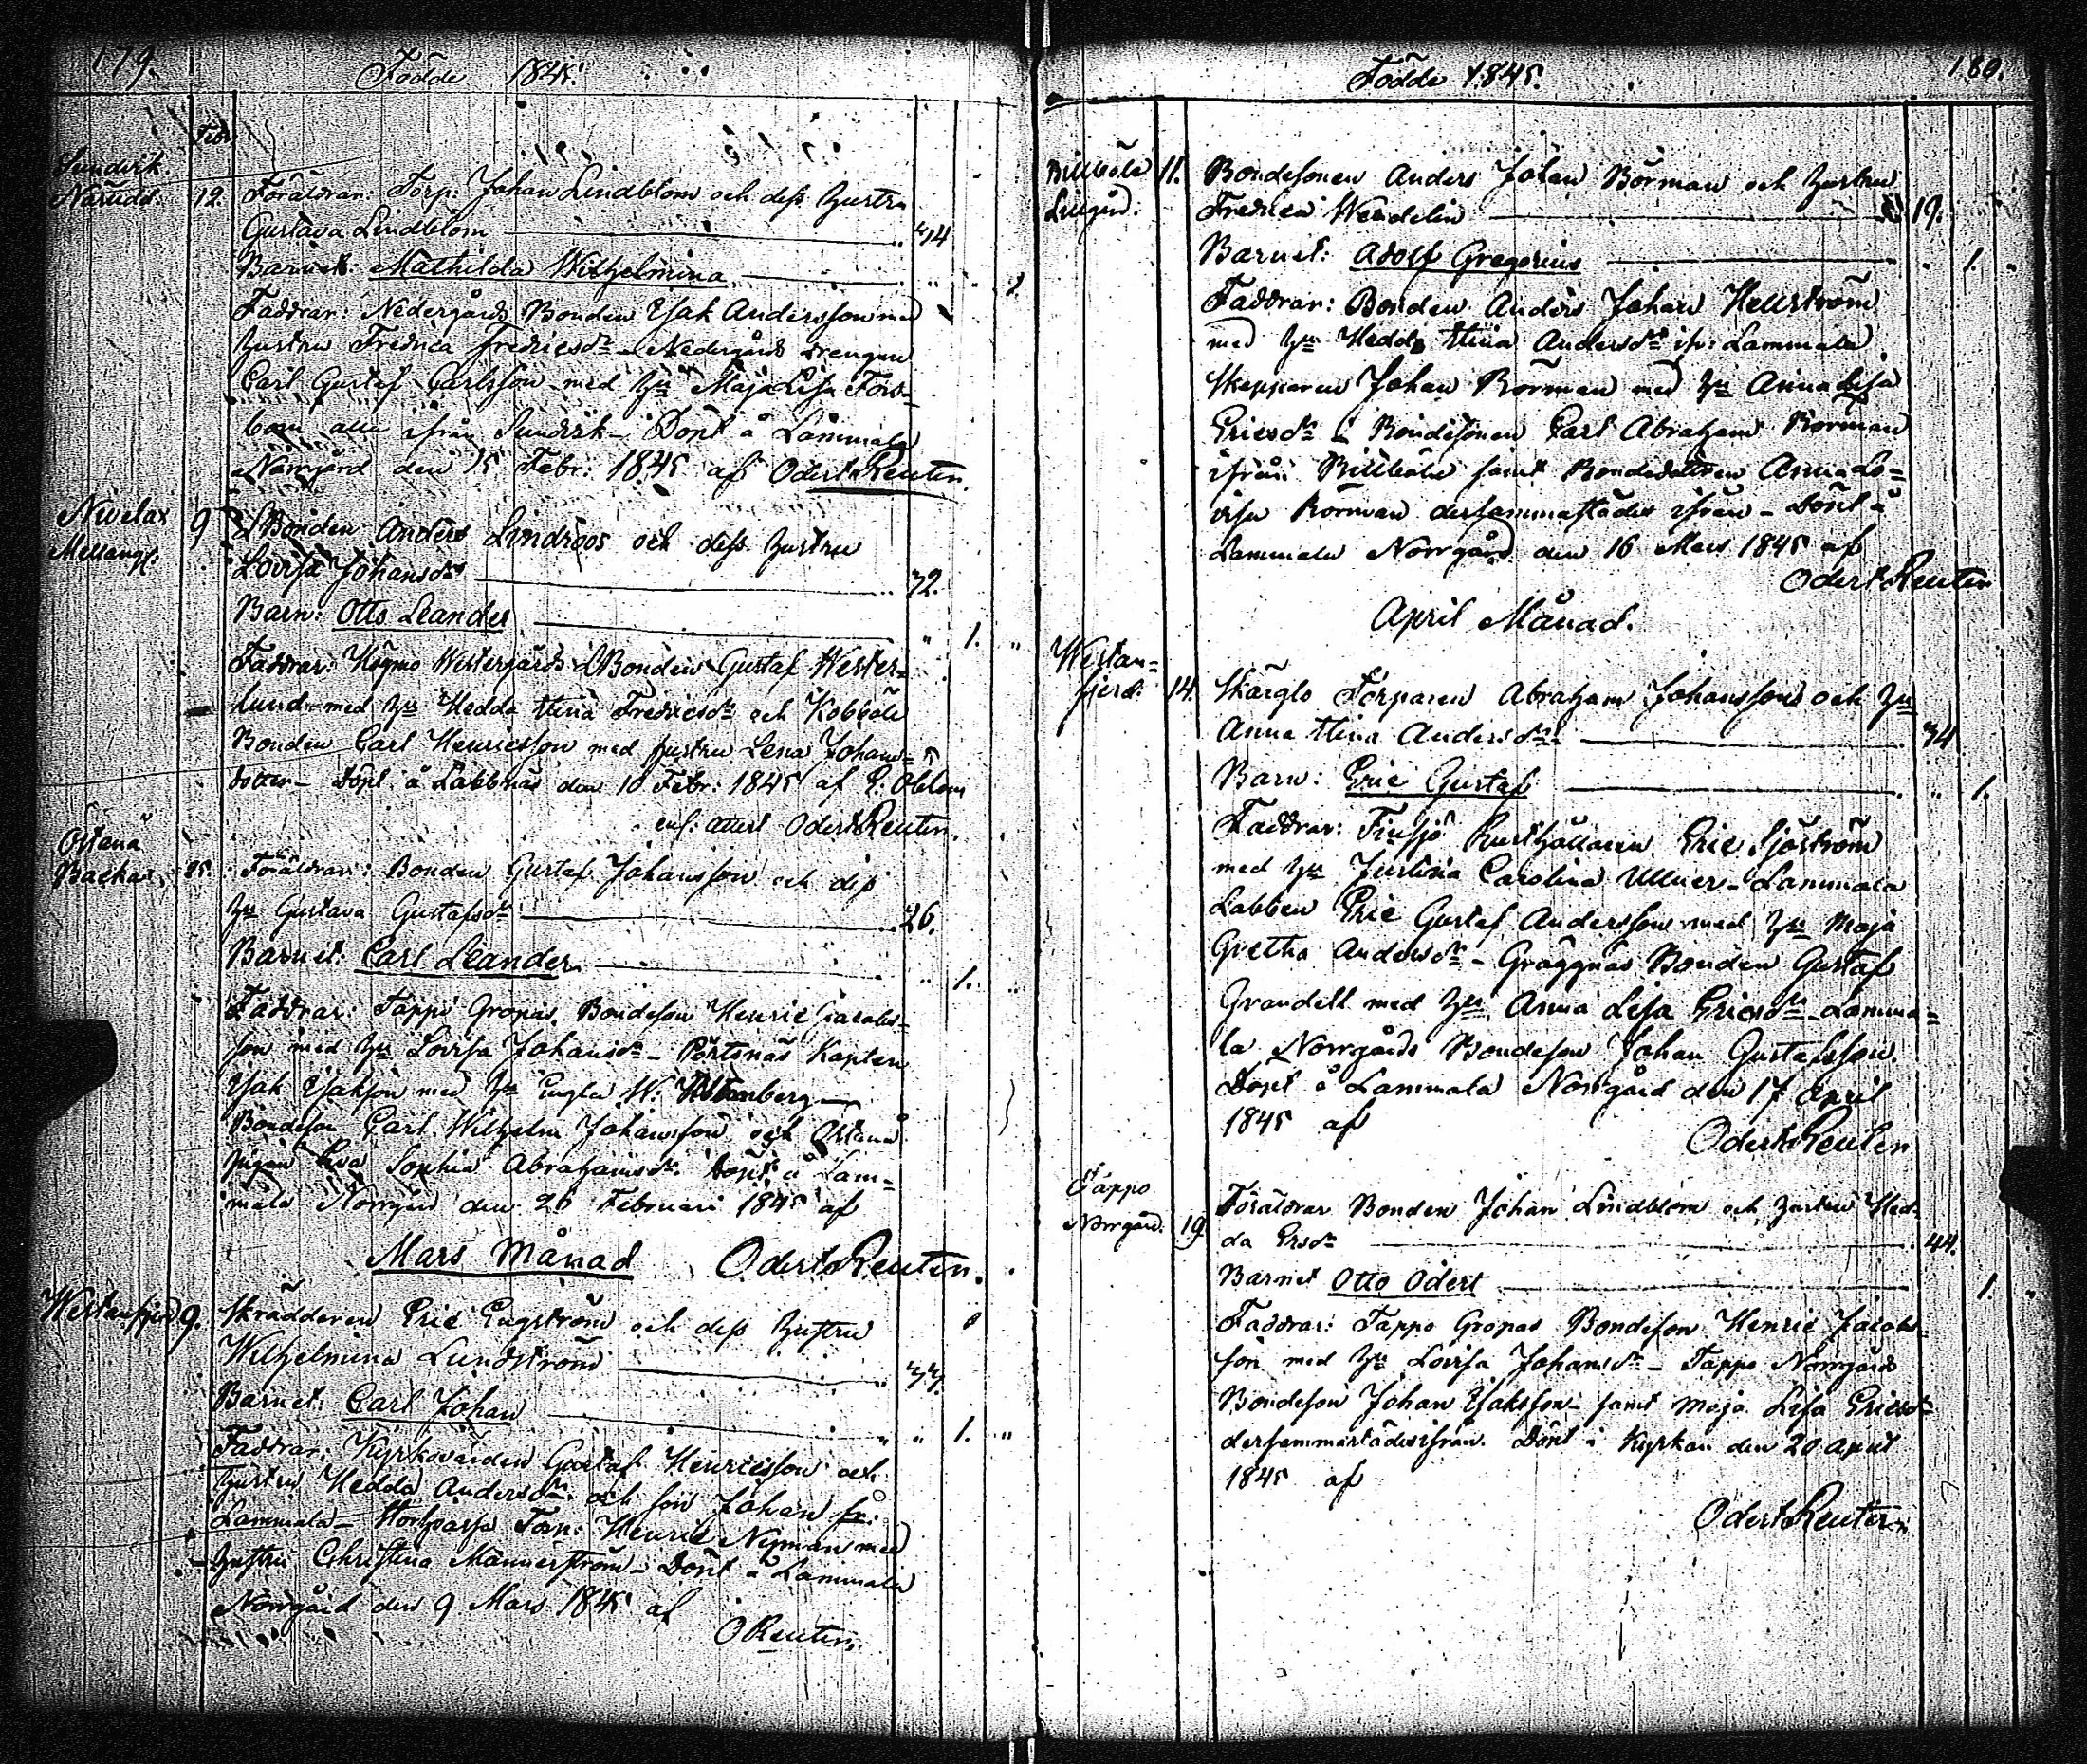 179.
Födde 1845.
Febr.
Sundvik.
Närudd. 12. Föräldrar: Torp. Johan Lindblom och dess hustru
Gustava Lindblom 34
Barnet: Mathilda Wilhelmina
Faddrar: Nedergårds Bonden Isak Andersson med
hustru Fredrica Fredricsdr Nedergårds drengen
Carl Gustaf Carlsson med hu Maja Lisa Fors-
bom alla ifrån Sundvik - Döpt å Lammala
Norrgård den 15 Febr: 1845 af Odert Reuter.
Nivelax 9 LBonden Anders Lindroos och dess hustru
Mellang.
Lovisa Johansdr 32.
Barn: Otto Leander " 1. "
Faddrar: Högmo Westergårds LBonden Gustaf Wester-
lund med hu Hedda Stina Fredricsdr och Kobböle
Bonden Carl Henricsson med hustru Lena Johans-
dotter - Döpt å Labbnäs den 10 Febr: 1845 af E. Öblom
enl: attest Odert Reuter.
Östanå
Backas, 25. Föräldrar: Bonden Gustaf Johansson och dess
hu Gustava Gustafsdr 26.
Barnet: Carl Leander. " 1. "
Faddrar: Tappo Gropas Bondeson Henric Jacobs-
son med hu Lovisa Johansdr - Pörtsnäs Kapten
Isak Isaksson med hu Engla W.
Bondeson Carl Wilhelm Johansson och Östanå
pigan Eva Sophia Abrahamsdr. Döpt å Lam-
mala Norrgård den 26 Februari 1845 af
Mars Månad Odert Reuter.
Westanfjerd 9. Skräddaren Eric Engström och dess hustru
Wilhelmina Lundström 37.
Barnet: Carl Johan " " 1. "
Faddrar: Kyrkovärden Gustaf Henricsson och
hustru Hedda Andersdr och son Johan fr:
Lammala - Torp: Henric Nyman med
hustru Christina Mannerström - Döpt å Lammala
Norrgård den 9 Mars 1845 af
O Reuter.
180.
Födde 1845.
Billböle 11. Bondesonen Anders Johan Borman och hustru
Lillgård. Fredrica Wendelin 19.
Barnet: Adolf Gregorius " 1. "
Faddrar: Bonden Anders Johan Hellström
med hu Hedda Stina Andersdr ifr: Lammala
Skepparen Johan Borman med hu Anna Lisa
Ericsdr - Bondesonen Carl Abraham Borman
ifrån Billböle samt Bondedottren Anna Lo-
visa Borman dersammastädes ifrån - Döpt å
Lammala Norrgård den 16 Mars 1845 af
Odert Reuter
April Månad.
Westan-
fjerd: 14. Skärglo Torparen Abraham Johansson och hu
Anna Stina Andersdr 34
Barn: Eric Gustaf " 1.
Faddrar: Finsjö Rusthållaren Eric Sjöström
med hu Justina Carolina Ullner - Lammala
Labben Eric Gustaf Andersson med hu Maja
Gretha Andersdr - Gräggnäs Bonden Gustaf
Grandell med hu Anna Lisa Ericsdr - Lamma-
la Norrgårds Bondeson Johan Gustafsson.
Döpt å Lammala Norrgård den 17 April
1845 af
Odert Reuter
Tappo
Norrgård. 19. Föräldrar Bonden Johan Lindblom och hustru Hed-
da Ersdr 44.
Barnet Otto Odert 1. "
Faddrar: Tappo Gropas Bondeson Henric Jacobs-
son med hu Lovisa Johansdr - Tappo Norrgårds
Bondeson Johan Isaksson samt Maja Lisa Ericsdr
dersammastädes ifrån. Döpt i Kyrkan den 20 April
1845 af
Odert Reuter.